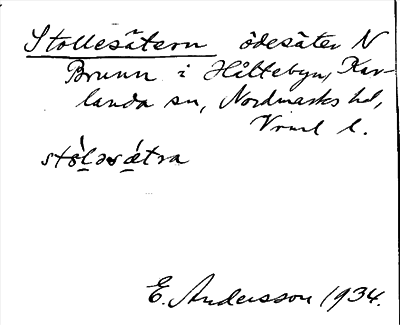 Stollesätern ödesäter N
Brunn i Hältebyn, Kar-
landa sn, Nordmarks hd,
Vrml l.
stòl̥əsǽtra
E. Andersson 1934.